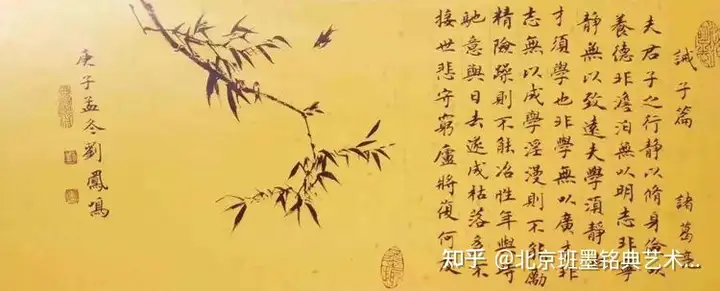 誡子篇 諸葛亮
夫君子之行靜以脩身儉以
養德非澹泊無以明志非寧
靜無以致遠夫學須靜也
才須學也非學無以廣才非
志無以成學淫漫則不能勵
精險躁則不能冶性年與時
馳意與日去遂成枯落多不
接世悲守窮廬將復何及
庚子孟冬劉鳳鳴
知乎 @北京班墨铭典艺术...